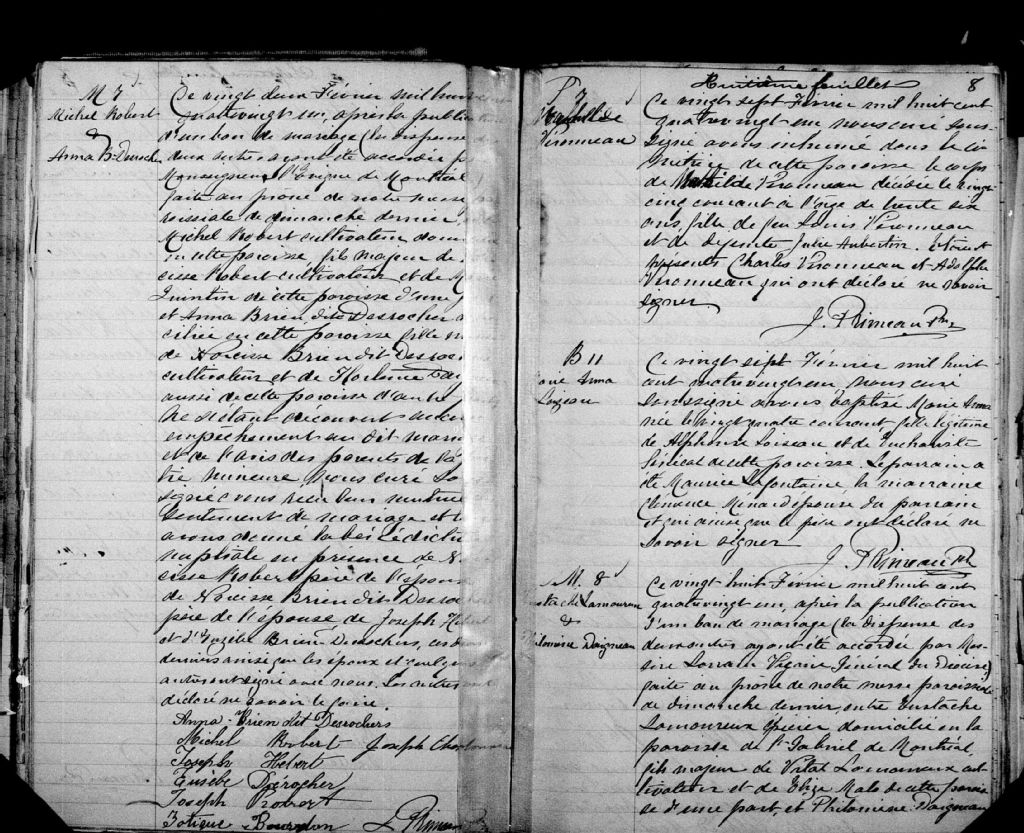 M 7
Michel Robert
&
Anna B. Desroch
Ce vingt deux Février mil huit
quatrevingt un, après la public
d'un ban de mariage (la dispense
deux autres ayant été accordée p
Monseigneur l'Evêque de Montréal
faite au prône de notre messe
roissiale de dimanche dernier
Michel Robert cultivateur domi
en cette paroisse, fils majeur de
cisse Robert cultivateur et de M
Quintin de cette paroisse d'une p
et Anna Brien dit Desrocher
ciliée en cette paroisse fille m
de Norcisse Brien dit Desroc
cultivateur et de Florlence
aussi de cette paroisse d'autre
Ne s'étant découvert aucun
empechement au dit maria
et de l'avis des parents de l'é
tie mineure Nous curé so
signé avons reçu leur mutuel
sentement de mariage et l
avons donné la bénédiction
nuptiale en présence de N
cisse Robert père de l'époux
de Norcisse Brien dit Desroc
père de l'épouse de Joseph Hebert
et d'Eusèbe Brien Desrochers, ces deux
derniers ainsi que les époux et quelques
autres ont signé avec nous. Les autres ont
déclaré ne savoir le faire.
Anna Brien dit Desrochers
Michel Robert Joseph
Joseph Hebert
Eusèbe Dérocher
Joseph Robert
Zotique Bourdon J. Primeau
Huitième feuillet 8
7
Mathilde
Véronneau
Ce vingt sept Février mil huit cent
quatrevingt un nous curé sous-
signé avons inhumé dans le ci
metière de cette paroisse le corps
de Mathilde Véronneau décédée le vingt
cinq courant à l'âge de trente six
ans, fille de feu Louis Véronneau
et de défunte Julie Aubertin. Etaient
présents Charles Véronneau et Adolphe
Véronneau qui ont déclaré ne savoir
signer
J. Primeau Ptre
B 11
Marie Anna
Loiseau
Ce vingt sept Février mil huit
cent quatrevingt un, nous curé
soussigné avons baptisé Marie Anna
née le vingt quatre courant, fille légitime
de Alphonse Loiseau et de Eucharistie
Sénécal de cette paroisse. Le parrain a
été Maurice Lafontaine la marraine
Clémence Ménard épouse du parrain
et qui ainsi que le père ont déclaré ne
savoir signer
J. Primeau Ptre
M. 8
Lamoureux
&
Philomène Daigneau
Ce vingt huit Février mil huit cent
quatrevingt un, après la publication
d'un ban de mariage (la dispense des
deux autres ayant été accordée par Mes-
sire Lorrain Vicaire Général du Diocèse)
faite au prône de notre messe paroissiale
de dimanche dernier, entre Eustache
Lamoureux épicier domicilié en la
paroisse de St Gabriel de Montréal,
fils majeur de Vital Lamoureux cul-
tivateur et de Elize Malo de cette parois
se d'une part, et Philomène Daigneau